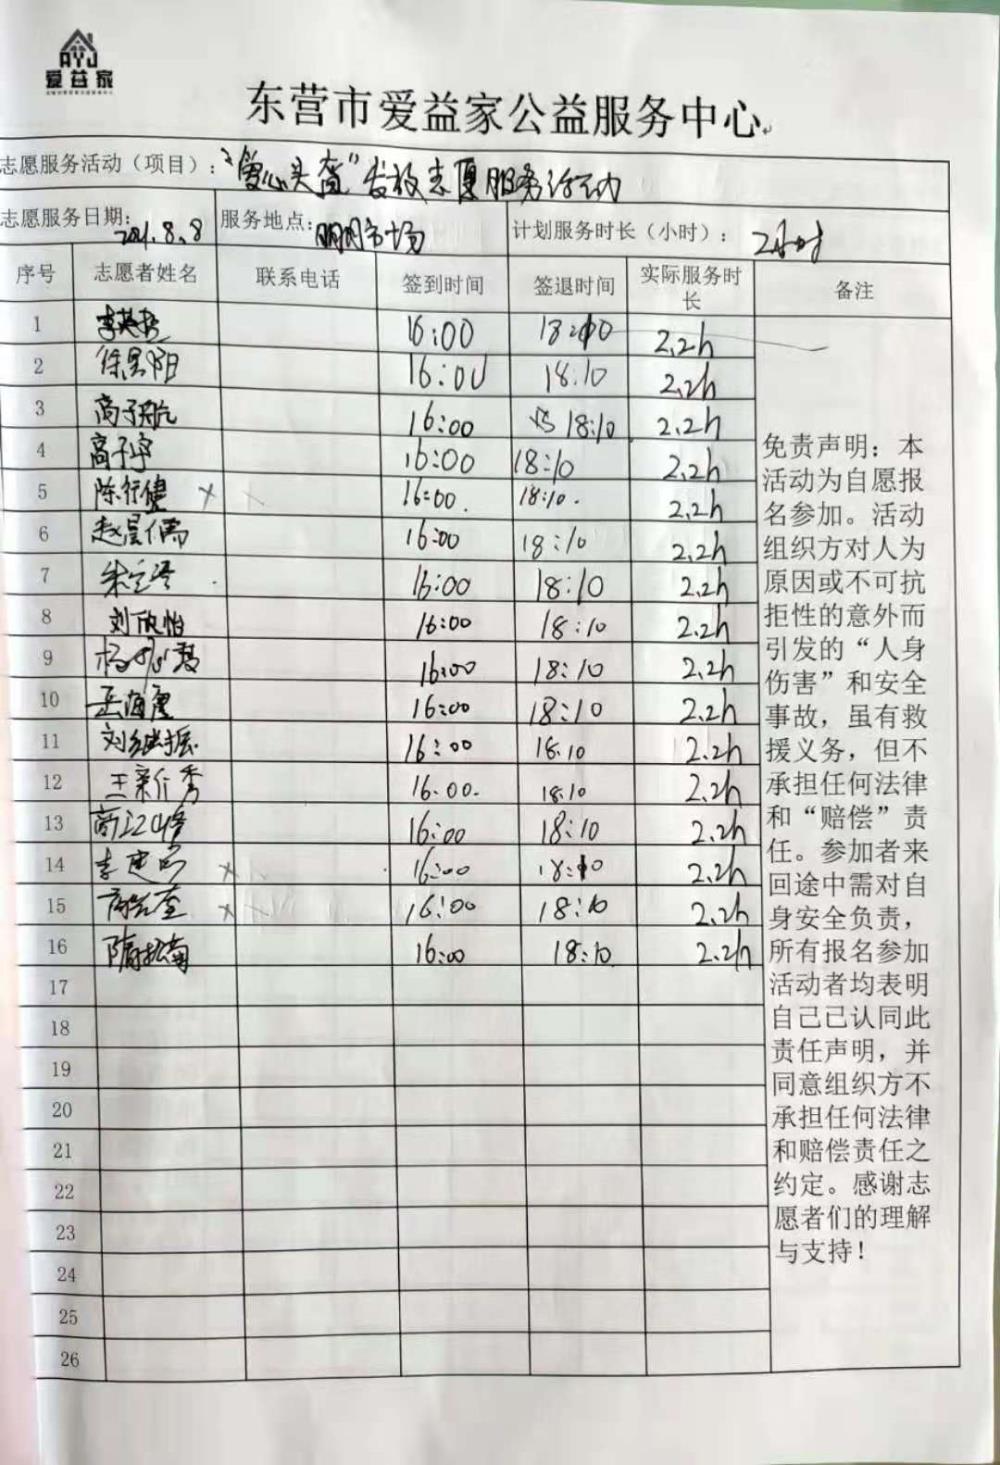 AYJ
爱益家
东营市爱益家公益服务中心
志愿服务活动（项目）：“爱心头盔”发放志愿服务活动
志愿服务日期： 2021.8.8 服务地点： 市场 计划服务时长（小时）： 2小时
序号 志愿者姓名 联系电话 签到时间 签退时间 实际服务时长 备注
1 16:00 18:10 2.2h
2 徐昊阳 16:00 18:10 2.2h
3 高子航 16:00 18:10 2.2h
4 高子宇 16:00 18:10 2.2h
5 陈行健 × 16:00. 18:10. 2.2h
6 赵晨儒 16:00 18:10 2.2h
7 16:00 18:10 2.2h
8 刘欣怡 16:00 18:10 2.2h
9 16:00 18:10 2.2h
10 岳海 16:00 18:10 2.2h
11 刘继振 16:00 18.10 2.2h
12 王新 秀 16.00. 18.10 2.2h
13 16:00 18:10 2.2h
14 李建 × 16:00 18:10 2.2h
15 × 16:00 18:10 2.2h
16 隋 16:00 18:10. 2.2h
17
18
19
20
21
22
23
24
25
26
免责声明：本
活动为自愿报
名参加。活动
组织方对人为
原因或不可抗
拒性的意外而
引发的“人身
伤害”和安全
事故，虽有救
援义务，但不
承担任何法律
和“赔偿”责
任。参加者来
回途中需对自
身安全负责，
所有报名参加
活动者均表明
自己已认同此
责任声明，并
同意组织方不
承担任何法律
和赔偿责任之
约定。感谢志
愿者们的理解
与支持！